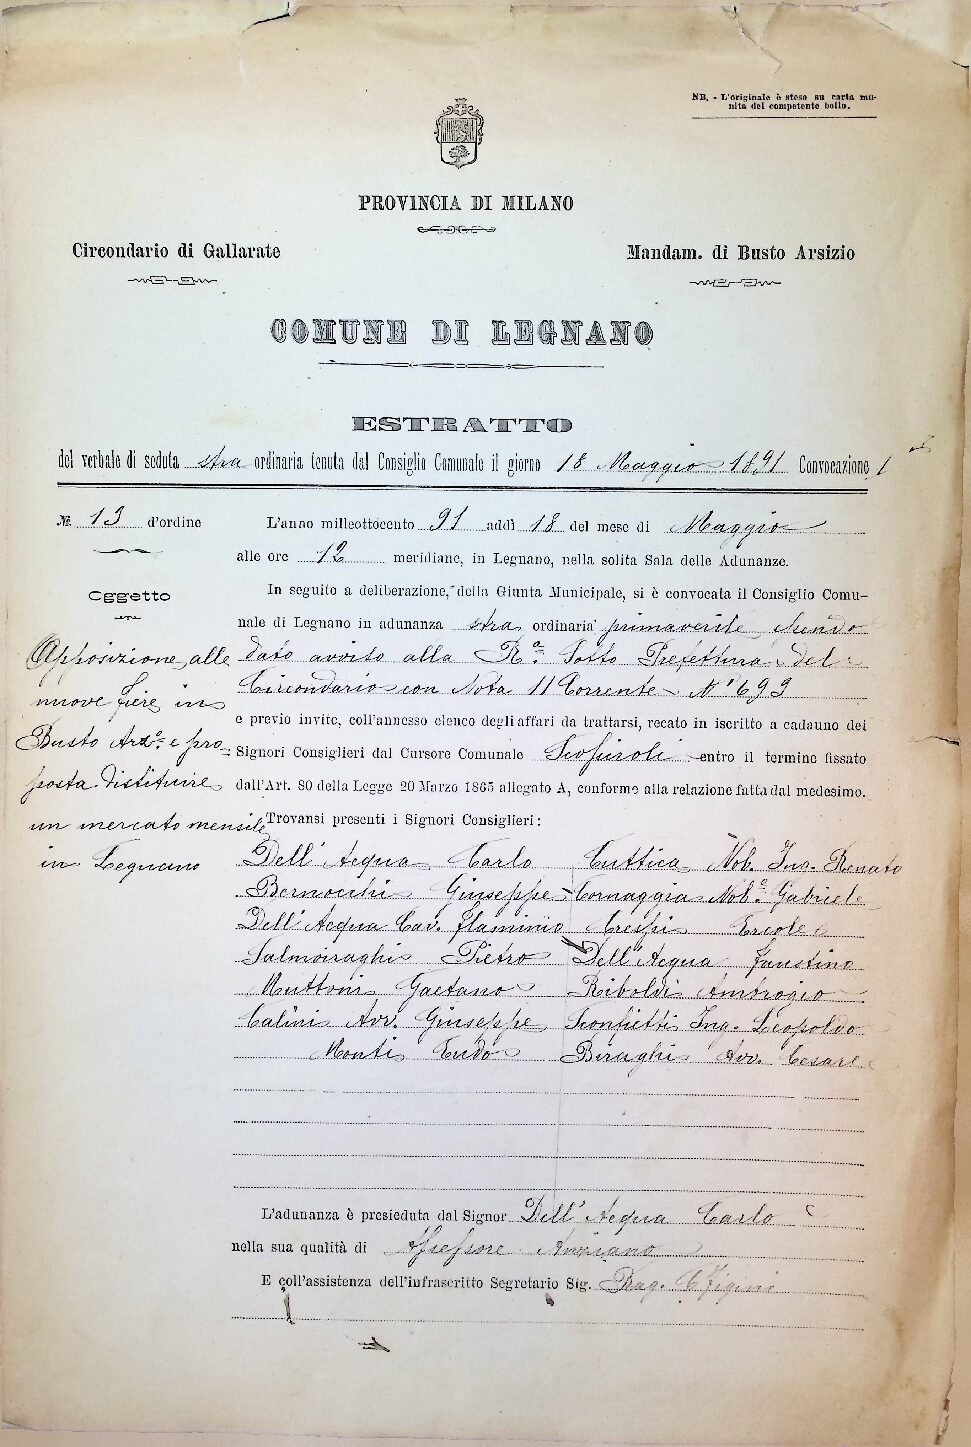 NB. - L'originale è steso su carta mu-
nita del competente bollo.
PROVINCIA DI MILANO
Circondario di Gallarate
Mandam. di Busto Arsizio
COMUNE DI LEGNANO
ESTRATTO
del verbale di seduta stra ordinaria tenuta dal Consiglio Comunale il giorno 18 Maggio 1891 Convocazione 1
№ 13 d'ordine
Oggetto
Opposizione alle
nuove fiere in
Busto Arz.º e pro=
posta d'istituire
un mercato mensile
in Legnano
L'anno milleottocento 91 addì 18 del mese di Maggio
alle ore 12 meridiane, in Legnano, nella solita Sala delle Adunanze.
In seguito a deliberazione, della Giunta Municipale, si è convocata il Consiglio Comu-
nale di Legnano in adunanza stra ordinaria primaverile avendo
dato avviso alla R.ª Sotto Prefettura del
Circondario con Nota 11 Corrente N.º 699
e previo invito, coll'annesso elenco degli affari da trattarsi, recato in iscritto a cadauno dei
Signori Consiglieri dal Cursore Comunale entro il termine fissato
dall'Art. 80 della Legge 20 Marzo 1865 allegato A, conforme alla relazione fatta dal medesimo.
Trovansi presenti i Signori Consiglieri:
Dell'Acqua Carlo Cuttica Nob. Ing. Renato
Bernocchi Giuseppe Cornaggia Nob.e Gabriele
Dell'Acqua Cav. Flaminio Crespi Ercole
Salmoiraghi Pietro Dell'Acqua Faustino
Muttoni Gaetano Riboldi Ambrogio
Calini Avv. Giuseppe Sconfietti Ing. Leopoldo
Monti Eudo Biraghi Avv. Cesare
L'adunanza è presieduta dal Signor Dell'Acqua Carlo
nella sua qualità di Assessore Anziano
E coll'assistenza dell'infrascritto Segretario Sig. Rag. C. Figini